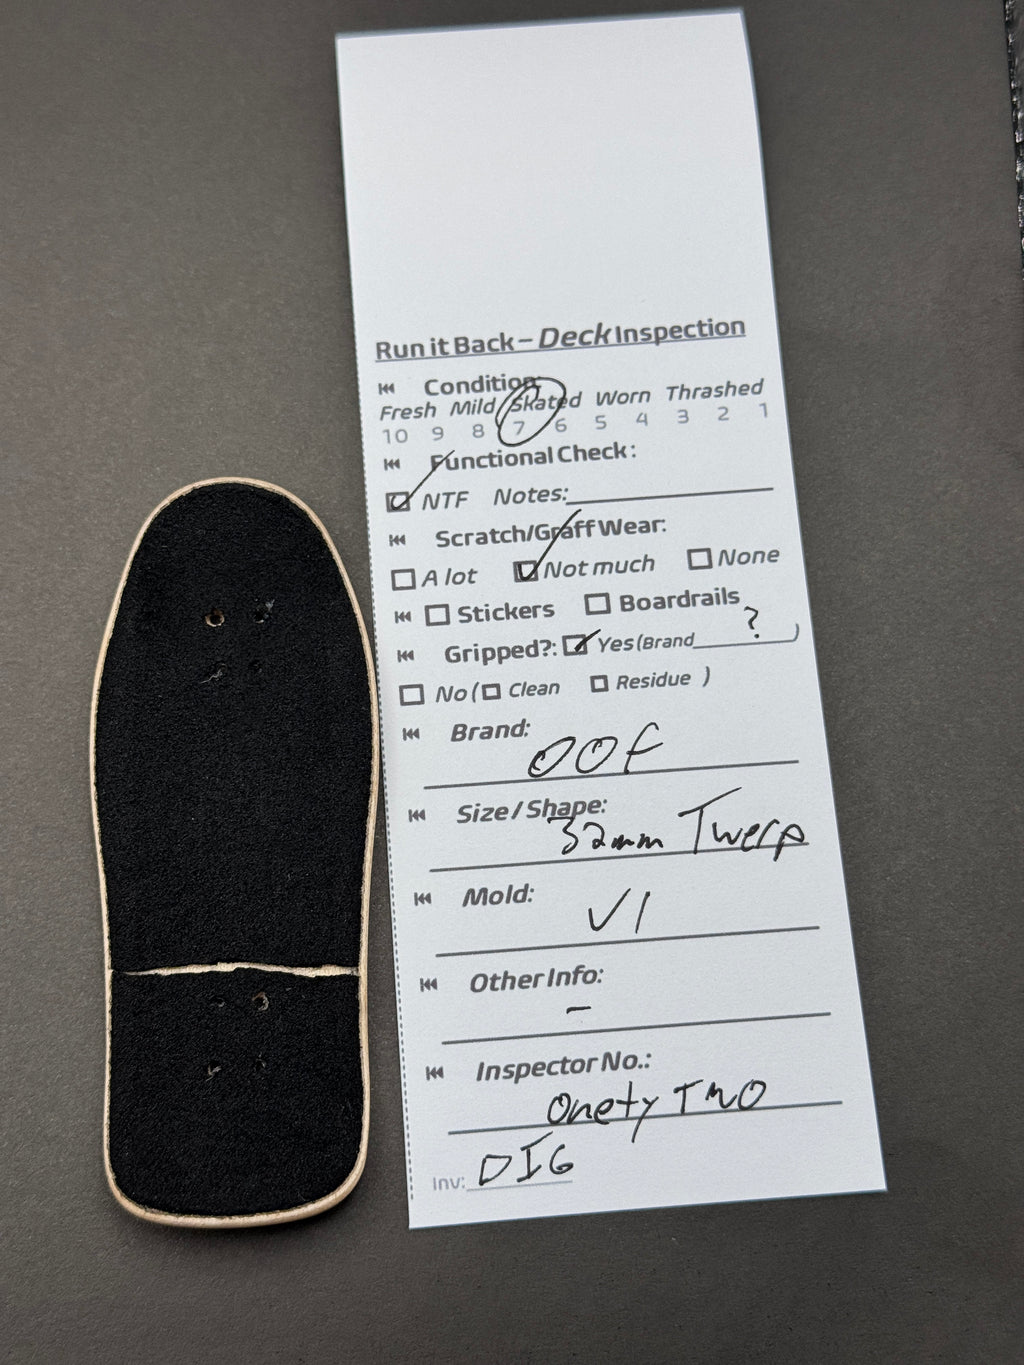 Run it Back – Deck Inspection
Condition:
Fresh Mild Skated Worn Thrashed
10 9 8 7 6 5 4 3 2 1
Functional Check:
NTF Notes:
Scratch/Graff Wear:
A lot Not much None
Stickers Boardrails
Gripped?: Yes (Brand ? )
No ( Clean Residue )
Brand:
OOF
Size / Shape:
32mm Twerp
Mold:
V1
Other Info:
–
Inspector No.:
Onety TWO
Inv: DIG